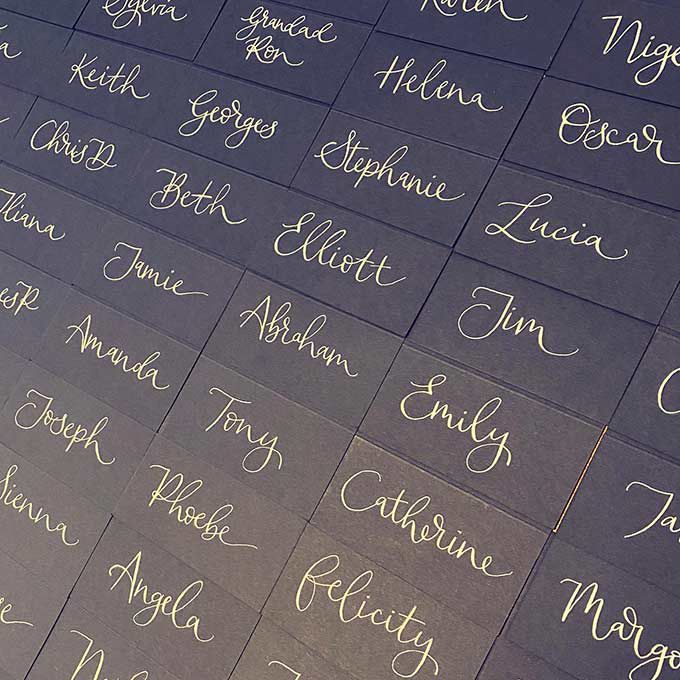 Sylvia
Grandad
Ron
Karen
Nige
Keith
Georges
Helena
Oscar
ChrisD
Beth
Stephanie
Lucia
Iliana
Jamie
Elliott
Jim
Amanda
Abraham
Emily
Joseph
Tony
Catherine
Ja
Sienna
Phoebe
Felicity
Margo
Angela